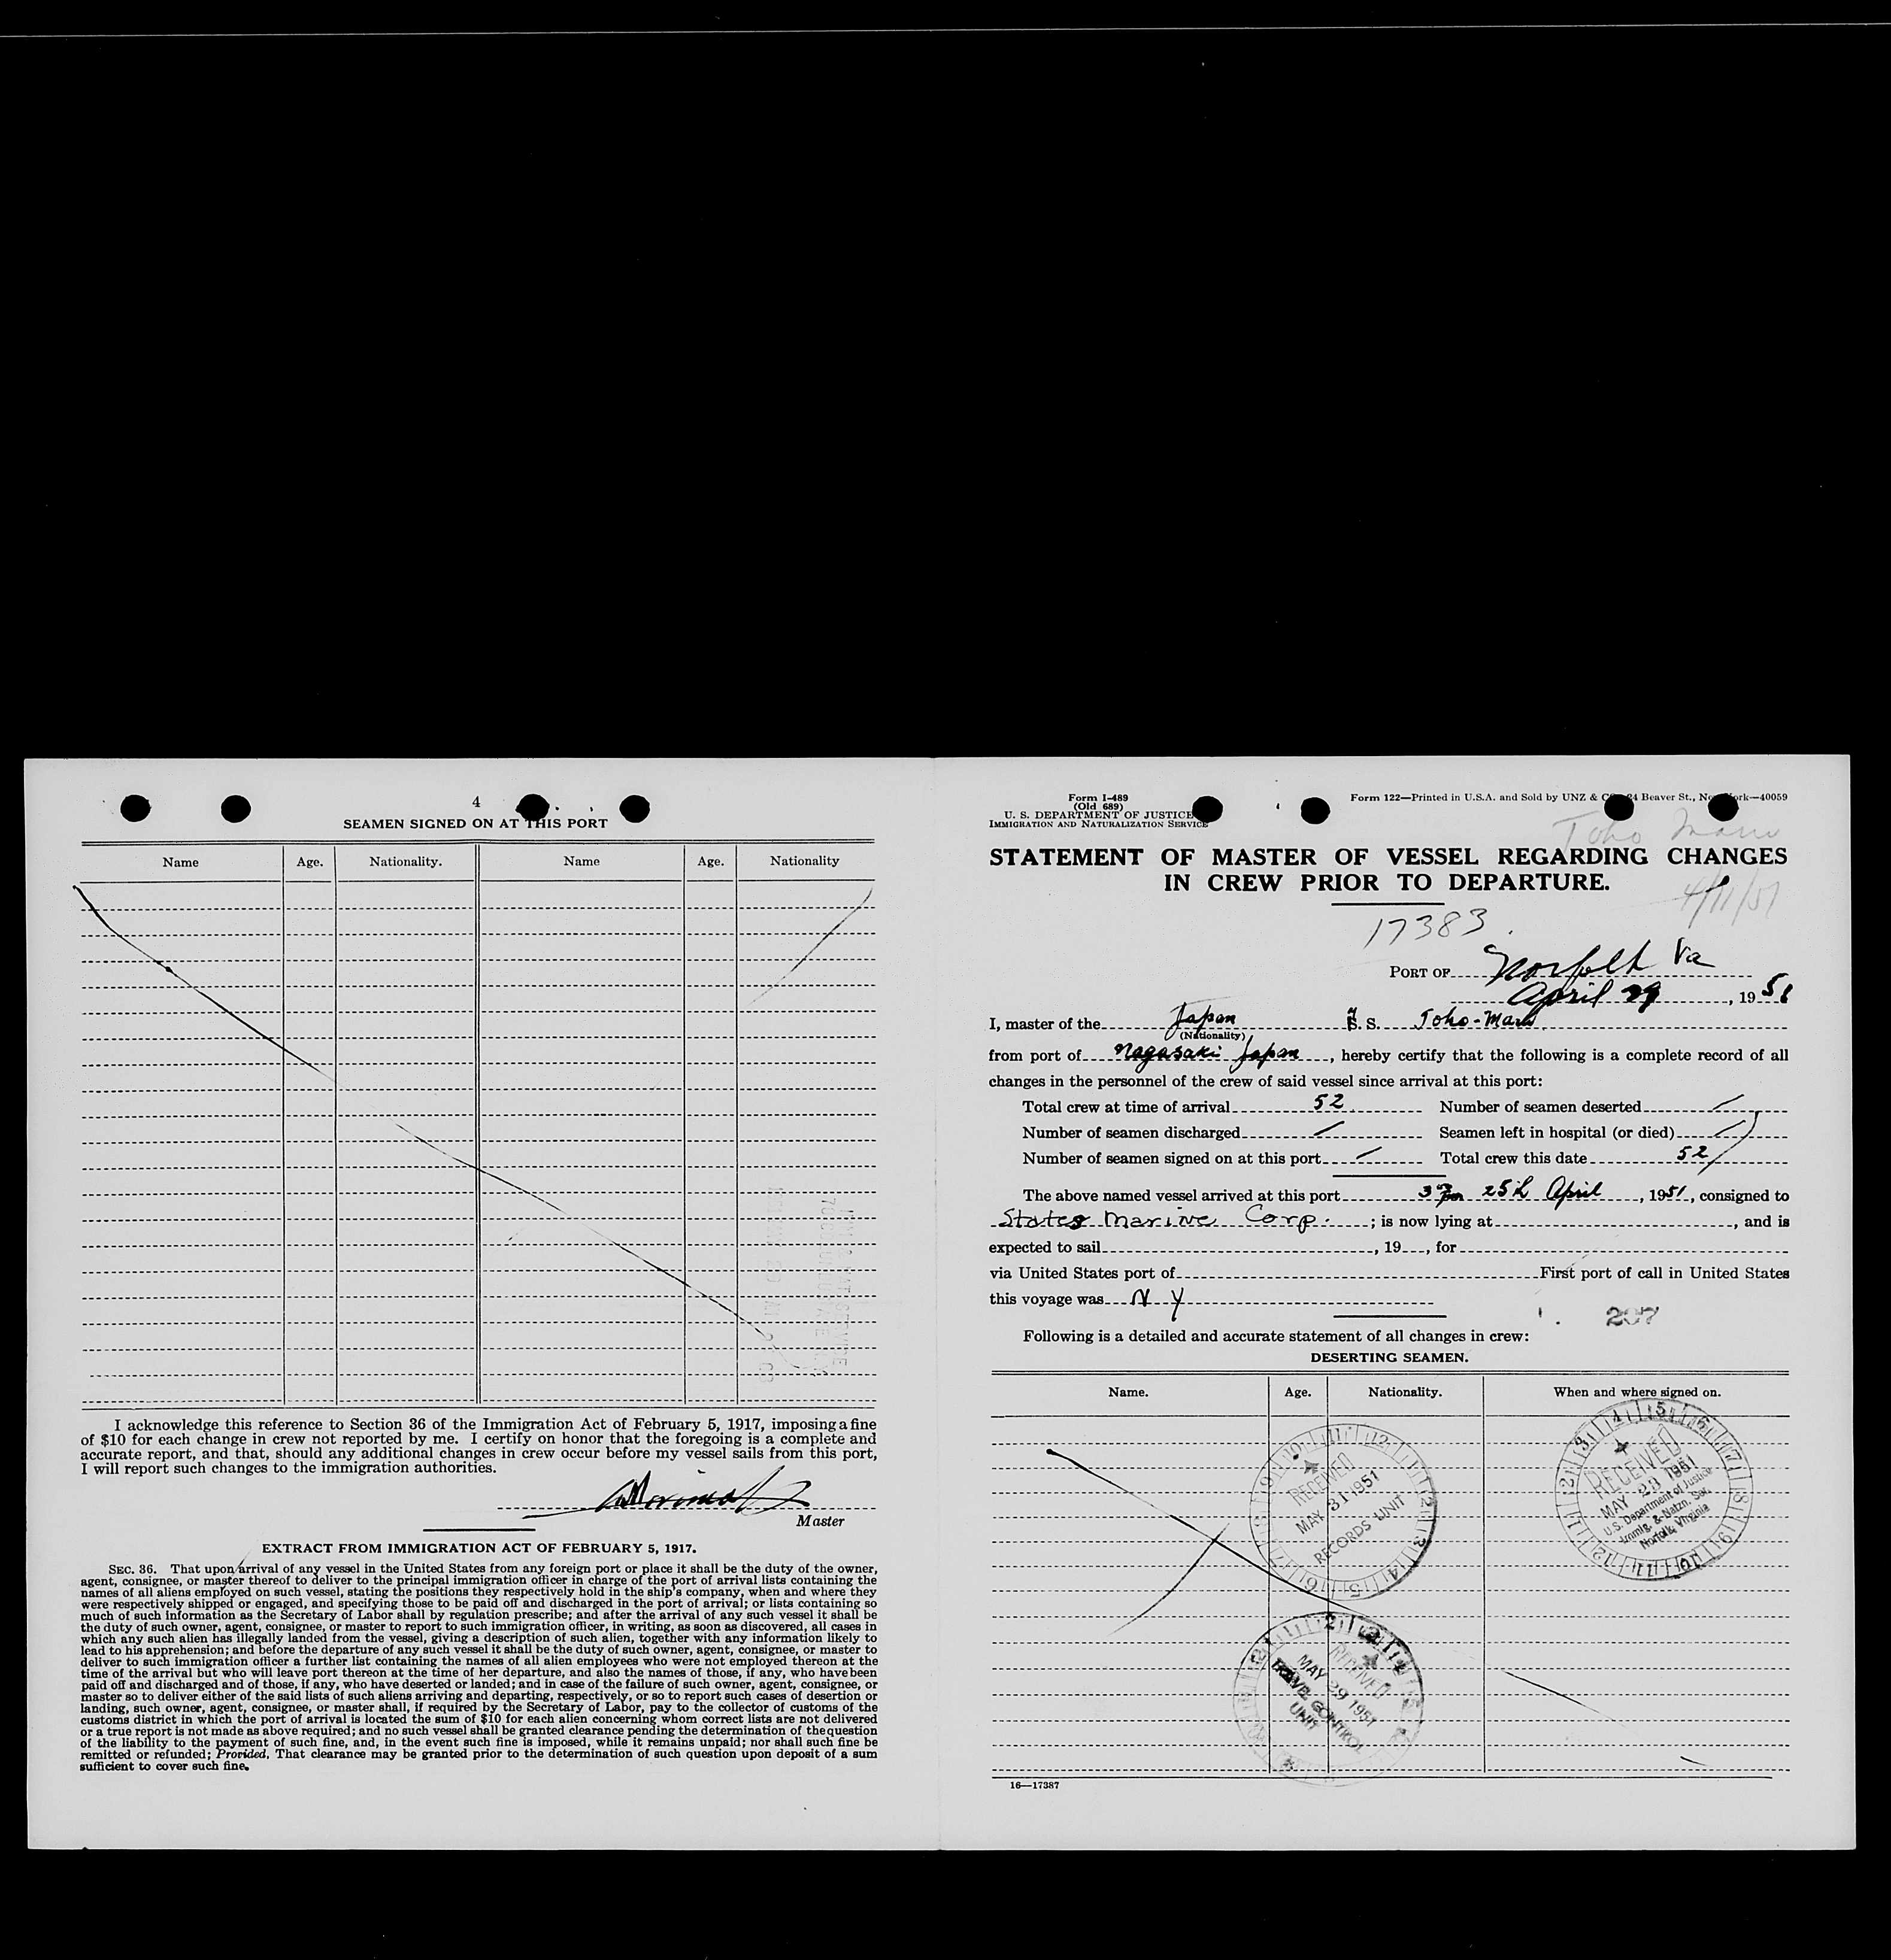 4
SEAMEN SIGNED ON AT THIS PORT
Name Age. Nationality. Name Age. Nationality
I acknowledge this reference to Section 36 of the Immigration Act of February 5, 1917, imposing a fine
of $10 for each change in crew not reported by me. I certify on honor that the foregoing is a complete and
accurate report, and that, should any additional changes in crew occur before my vessel sails from this port,
I will report such changes to the immigration authorities.
Master
EXTRACT FROM IMMIGRATION ACT OF FEBRUARY 5, 1917.
SEC. 36. That upon arrival of any vessel in the United States from any foreign port or place it shall be the duty of the owner,
agent, consignee, or master thereof to deliver to the principal immigration officer in charge of the port of arrival lists containing the
names of all aliens employed on such vessel, stating the positions they respectively hold in the ship's company, when and where they
were respectively shipped or engaged, and specifying those to be paid off and discharged in the port of arrival; or lists containing so
much of such information as the Secretary of Labor shall by regulation prescribe; and after the arrival of any such vessel it shall be
the duty of such owner, agent, consignee, or master to report to such immigration officer, in writing, as soon as discovered, all cases in
which any such alien has illegally landed from the vessel, giving a description of such alien, together with any information likely to
lead to his apprehension; and before the departure of any such vessel it shall be the duty of such owner, agent, consignee, or master to
deliver to such immigration officer a further list containing the names of all alien employees who were not employed thereon at the
time of the arrival but who will leave port thereon at the time of her departure, and also the names of those, if any, who have been
paid off and discharged and of those, if any, who have deserted or landed; and in case of the failure of such owner, agent, consignee, or
master so to deliver either of the said lists of such aliens arriving and departing, respectively, or so to report such cases of desertion or
landing, such owner, agent, consignee, or master shall, if required by the Secretary of Labor, pay to the collector of customs of the
customs district in which the port of arrival is located the sum of $10 for each alien concerning whom correct lists are not delivered
or a true report is not made as above required; and no such vessel shall be granted clearance pending the determination of the question
of the liability to the payment of such fine, and, in the event such fine is imposed, while it remains unpaid; nor shall such fine be
remitted or refunded; Provided, That clearance may be granted prior to the determination of such question upon deposit of a sum
sufficient to cover such fine.
Form I-489
(Old 689)
U. S. DEPARTMENT OF JUSTICE
IMMIGRATION AND NATURALIZATION SERVICE
Form 122—Printed in U.S.A. and Sold by UNZ & Beaver St., 40059
Toho Maru
STATEMENT OF MASTER OF VESSEL REGARDING CHANGES
IN CREW PRIOR TO DEPARTURE.
4/11/51
17383
PORT OF Norfolk Va
April 29, 1951
I, master of the Japan S. Toho-Maru
(Nationality)
from port of Nagasaki Japan, hereby certify that the following is a complete record of all
changes in the personnel of the crew of said vessel since arrival at this port:
Total crew at time of arrival 52 Number of seamen deserted /
Number of seamen discharged / Seamen left in hospital (or died) /
Number of seamen signed on at this port / Total crew this date 52
The above named vessel arrived at this port 25th April, 1951, consigned to
States Marine Corp. ; is now lying at , and is
expected to sail , 19 , for
via United States port of First port of call in United States
this voyage was N Y
207
Following is a detailed and accurate statement of all changes in crew:
DESERTING SEAMEN.
Name. Age. Nationality. When and where signed on.
RECEIVED
MAY 31 1951
RECORDS UNIT
RECEIVED
MAY 28 1951
U.S. Department of Justice
Immig. & Natzn. Ser.
Norfolk, Virginia
RECEIVED
MAY 29 1951
TRAVEL CONTROL
UNIT
16—17387